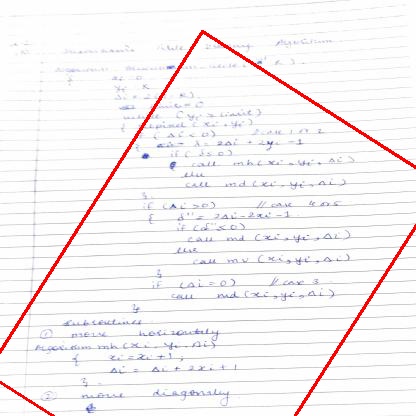 Bresenham's Circle Drawing Algorithm
Algorithm
{ xi = 0
yi = R
limit = 0
while (yi ≥ limit)
{ setpixel (xi, yi)
if (Δi < 0) // case 1 or 2
{ δ = 2Δi + 2yi - 1
if (δ ≤ 0)
{ call mh (xi, yi, Δi)
else
call md (xi, yi, Δi)
}
if (Δi > 0) // case 4 or 5
{ δ' = 2Δi - 2xi - 1
if (δ' ≤ 0)
call md (xi, yi, Δi)
else
call mv (xi, yi, Δi)
}
if (Δi = 0) // case 3
call md (xi, yi, Δi)
}
Subroutines
① move horizontally
Algorithm mh (xi, yi, Δi)
{ xi = xi + 1;
Δi = Δi + 2xi + 1
}
② move diagonally
{